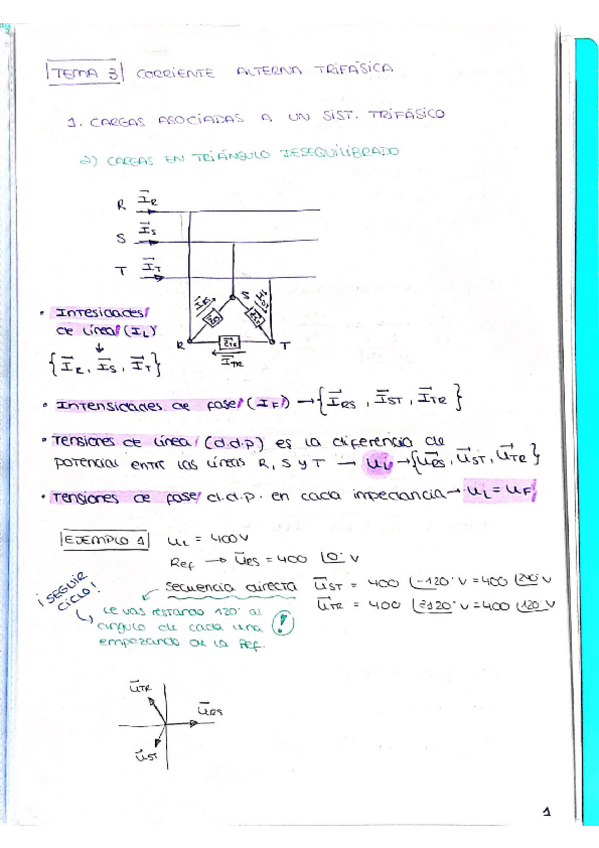 TEMA 3 CORRIENTE ALTERNA TRIFÁSICA
1. CARGAS ASOCIADAS A UN SIST. TRIFÁSICO
2) CARGAS EN TRIÁNGULO DESEQUILIBRADO
R I⃗R
S I⃗S
T I⃗T
S
I⃗RS
I⃗ST
R
T
I⃗TR
• Intesidades
de línea (IL)
↓
{I⃗R, I⃗S, I⃗T}
• Intensidades de fase (IF) → {I⃗RS, I⃗ST, I⃗TR}
• Tensiones de línea (d.d.p) es la diferencia de
potencial entre las líneas R, S y T → UL → {U⃗RS, U⃗ST, U⃗TR}
• Tensiones de fase d.d.p. en cada impedancia → UL = UF
EJEMPLO 1 UL = 400 V
Ref → U⃗RS = 400 |0° V
secuencia directa U⃗ST = 400 |-120° V = 400 |240° V
U⃗TR = 400 V = 400 |120° V
¡SEGUIR
CICLO!
Le vas restando 120° al
ángulo de cada una
empezando de la Ref.
!
U⃗TR
U⃗RS
U⃗ST
1